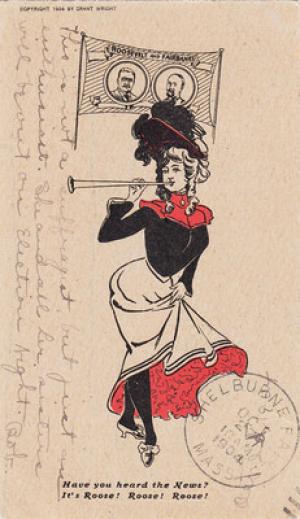 COPYRIGHT 1904 BY GRANT WRIGHT
ROOSEVELT AND FAIRBANKS
This is not a suffragist but just an
enthusiast. She and all her sisters
will shout on Election Night
Bob
SHELBURNE FALLS
OCT
1904
MASS.
Have you heard the News?
It's Roose! Roose! Roose!